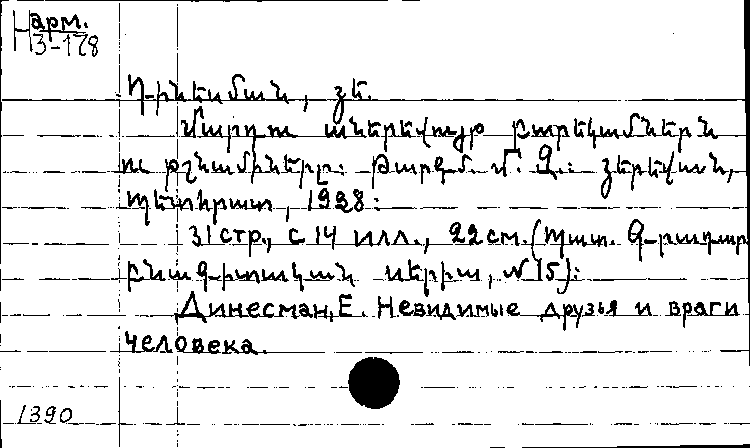 арм.
Н 3-178
Դինեսման, Ե.
Մարդու աներևույթ բարեկամներն
ու թշնամիները: Թարգմ. Մ. Զ.: Երևան,
պետհրատ, 1928:
31 стр., с 14 илл., 22 см. (Մատ.
բնագիտական սերիա, № 15):
Динесман, Е. Невидимые друзья и враги
человека.
1390